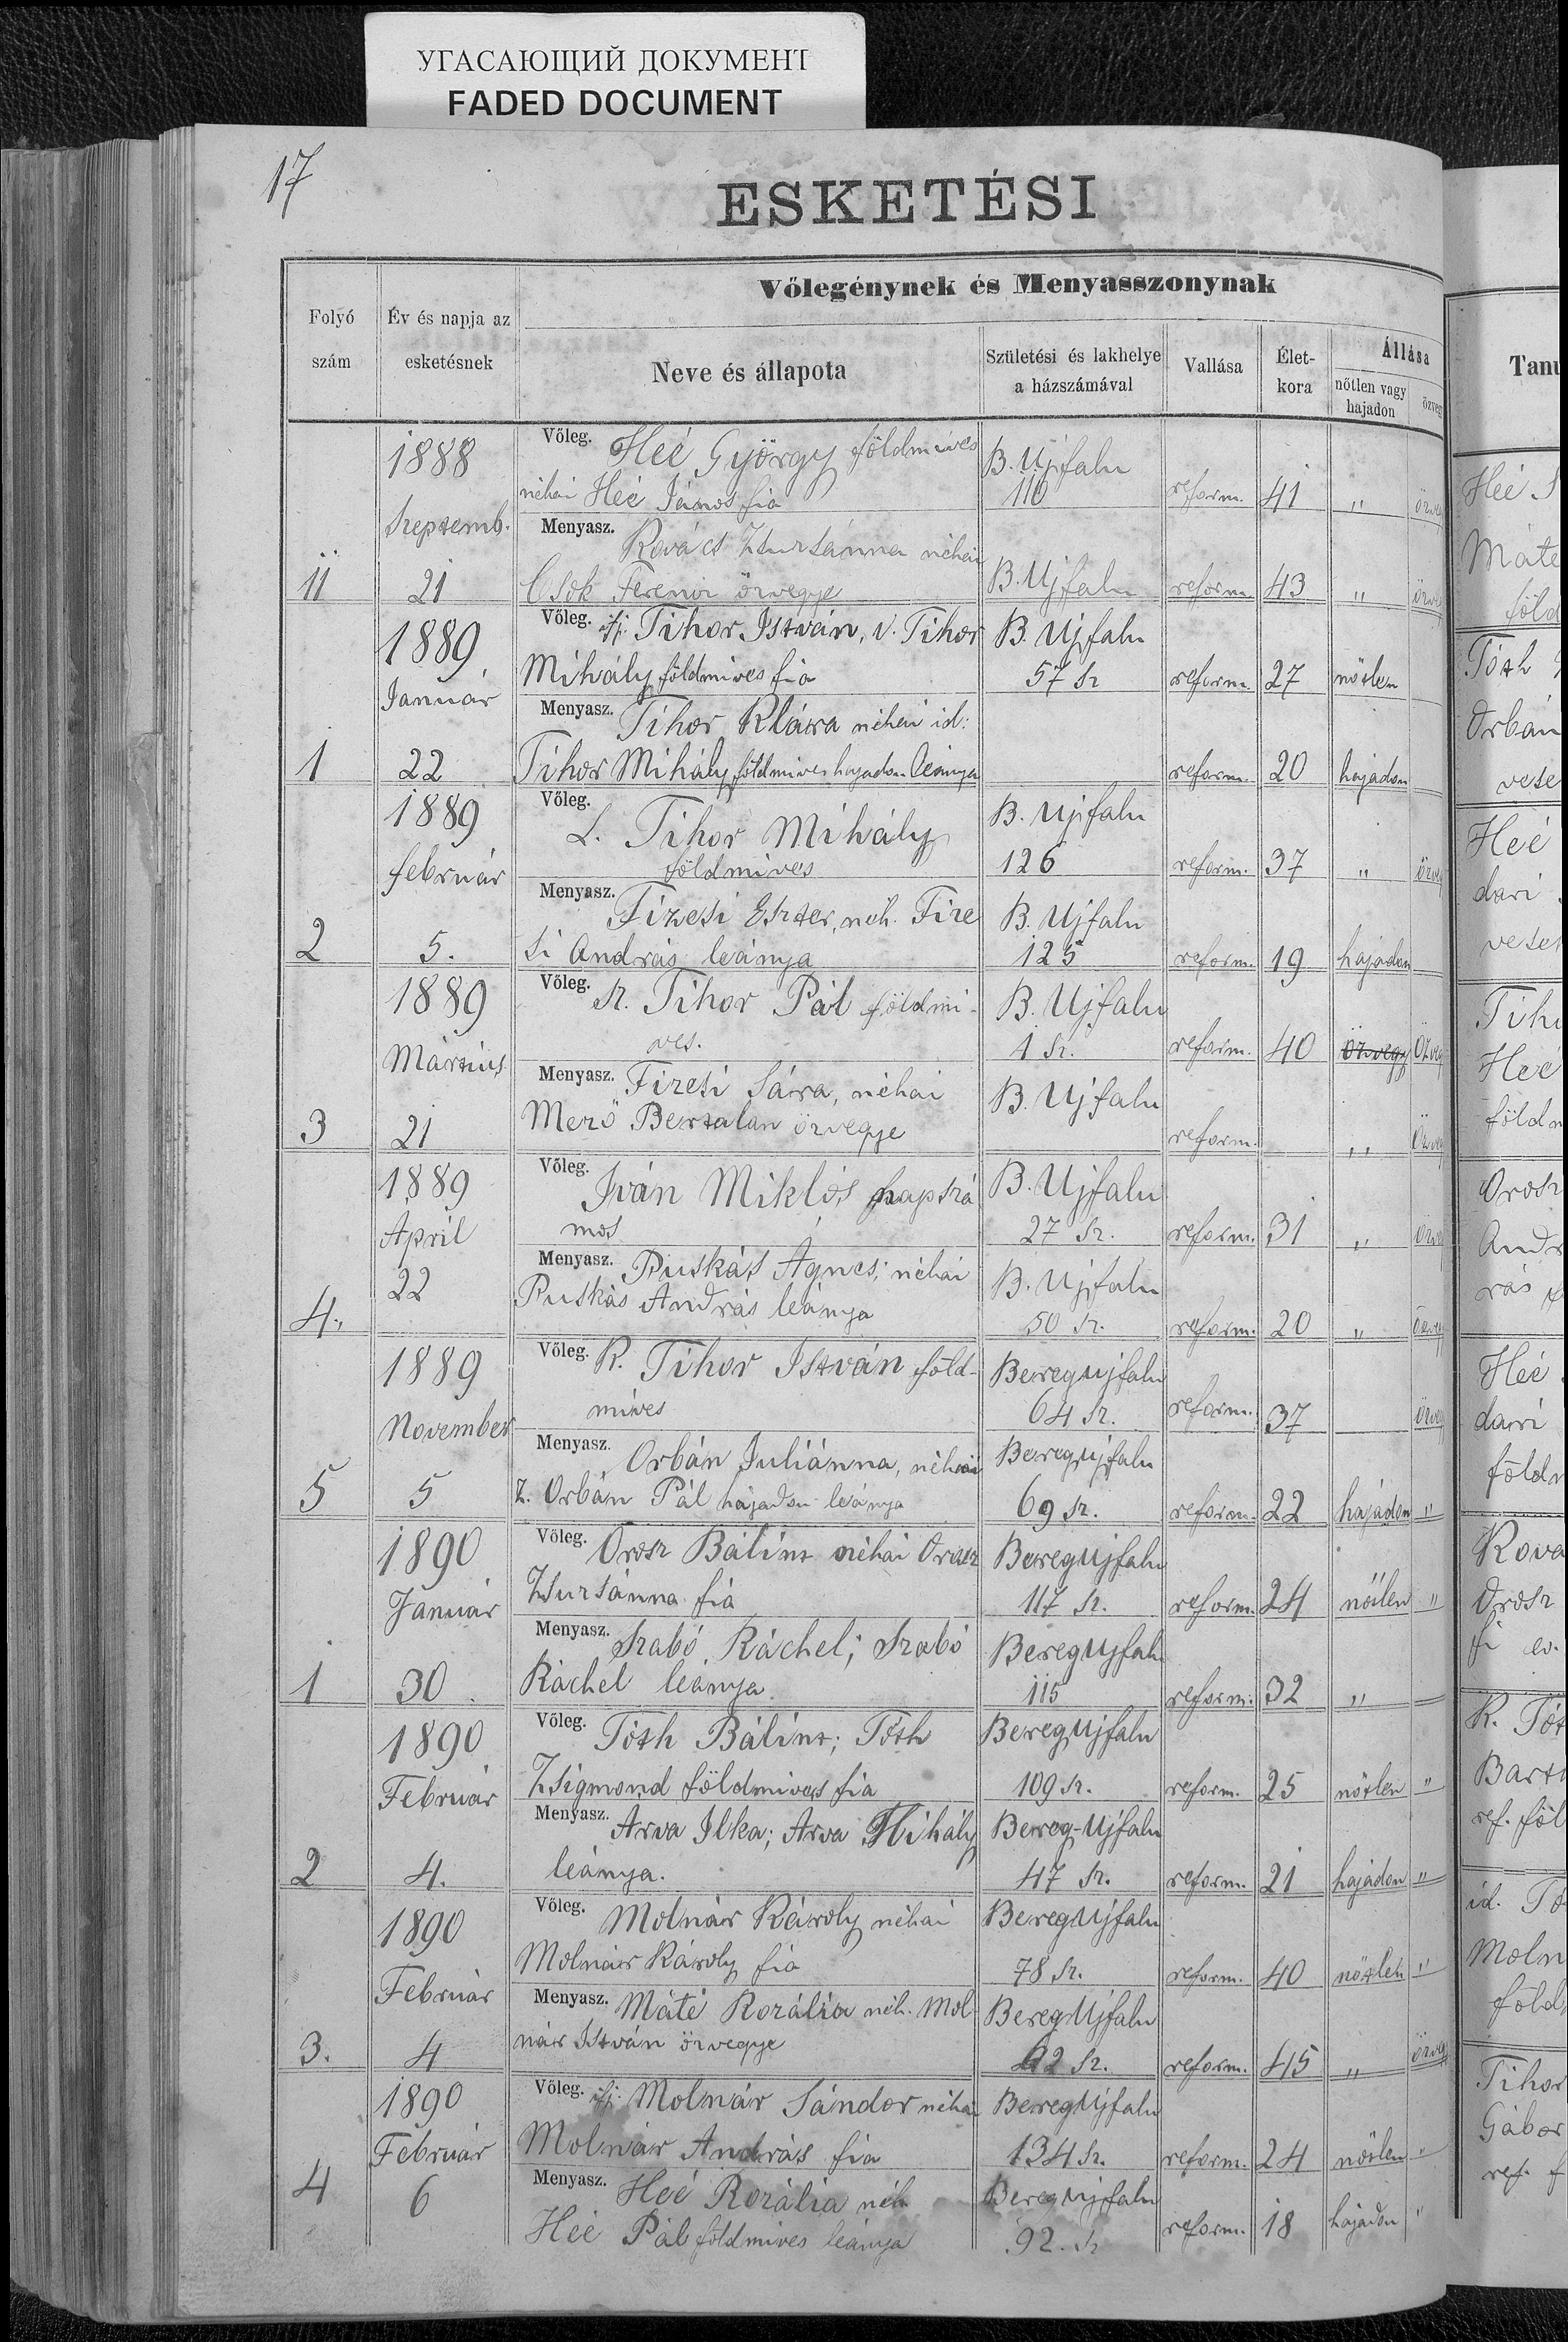 УГАСАЮЩИЙ ДОКУМЕНТ
FADED DOCUMENT
17
ESKETÉSI
Vőlegénynek és Menyasszonynak
Folyó szám
Év és napja az esketésnek
Neve és állapota
Születési és lakhelye a házszámával
Vallása
Élet-kora
Állása
nőtlen vagy hajadon
özvegy
Tanu
1888 Vőleg. Heé György földmives B. Ujfalu
néhai Heé János fia 110 reform. 41 " özveg
Szeptemb. Menyasz. Kovács Zsuzsánna néhai
11 21 Csok Ferencz özvegye B. Ujfalu reform. 43 " özveg
1889 Vőleg. ifj. Tihor István, i. Tihor B. Ujfalu
Mihály földmives fia 57 sz reform. 27 nőtlen
Január Menyasz. Tihor Klára néhai id:
1 22 Tihor Mihály földmives hajadon leánya reform. 20 hajadon
1889 Vőleg. L. Tihor Mihály B. Ujfalu
február földmives 126 reform. 37 " özveg
Menyasz. Fizesi Eszter, néh. Fize B. Ujfalu
2 5. si András leánya 125 reform. 19 hajadon
1889 Vőleg. Sz. Tihor Pál földmi- B. Ujfalu
Március ves. 1 sz. reform. 40 özvegy Özveg
Menyasz. Fizesi Sára, néhai B. Ujfalu
3 21 Mező Bertalan özvegye reform. " Özveg
1889 Vőleg. Iván Miklós napszá B. Ujfalu
April mos 27 sz. reform. 31 " özveg
22 Menyasz. Puskás Ágnes; néhai B. Ujfalu
4. Puskás András leánya 50 sz. reform. 20 " özvegy
1889 Vőleg. K. Tihor István föld- BeregUjfalu
November mives 64 sz. reform. 37 özveg
Menyasz. Orbán Juliánna, néhai BeregUjfalu
5 5 Z. Orbán Pál hajadon leánya 69 sz. reform. 22 hajadon "
1890 Vőleg. Orosz Bálint néhai Orosz BeregUjfalu
Január Zsuzsánna fia 117 sz. reform. 24 nőtlen "
Menyasz. Szabó Ráchel; Szabó BeregUjfalu
1 30. Ráchel leánya 115 reform. 32 "
1890 Vőleg. Tóth Bálint; Tóth BeregUjfalu
Február Zsigmond földmives fia 109 sz. reform. 25 nőtlen "
Menyasz. Arva Ilka; Arva Mihály Bereg-Ujfalu
2 4. leánya. 47 sz. reform. 21 hajadon "
1890 Vőleg. Molnár Károly néhai BeregUjfalu
Február Molnár Károly fia 78 sz. reform. 40 nőtlen "
Menyasz. Máté Rozália néh. Mol- BeregUjfalu
3. 4 nár István özvegye 62 sz. reform. 45 " özveg
1890 Vőleg. ifj. Molnár Sándor néhai BeregUjfalu
Február Molnár András fia 134 sz. reform. 24 nőtlen "
4 6 Menyasz. Heé Rozália néh. BeregUjfalu
Heé Pál földmives leánya 92. sz reform. 18 hajadon "
Heé
Máté
föld
Tóth
Orbán
veze
Heé
dari
vezet
Tiho
Heé
földm
Orosz
Andr
rás
Heé
dari
földm
Kova
Orosz
fi ev.
K. Tót
Bart
ref. föl
id. Tó
Moln
föld
Tihor
Gábor
ref. f